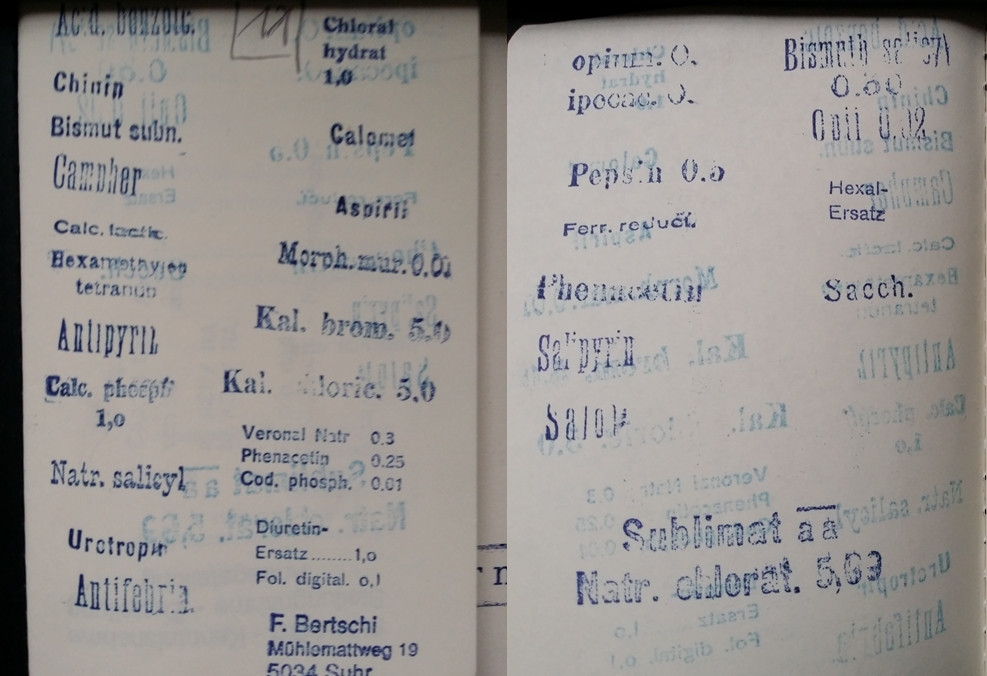 Acid. benzoic.
Chinin
Bismut subn.
Campher
Calc. lactic.
Hexamethylen
tetramin
Antipyrin
Calc. phosph
1,0
Natr. salicyl
Urotropin
Antifebrin.
Chloral
hydrat
1,0
Calomel
Aspirin
Morph. mur. 0.01
Kal. brom. 5.0
Kal. chloric. 5.0
Veronal Natr 0.3
Phenacetin 0.25
Cod. phosph. 0.01
Diuretin-
Ersatz ....... 1,0
Fol. digital. 0,1
F. Bertschi
Mühlemattweg 19
5034 Suhr
opium. O.
ipecac. O.
Pepsin 0.5
Ferr. reduct.
Phenacetin
Salipyrin
Salol
Bismuth salicyl
0.50
Opii 0.02
Hexal-
Ersatz
Sacch.
Sublimat aa
Natr. chlorat. 5,69